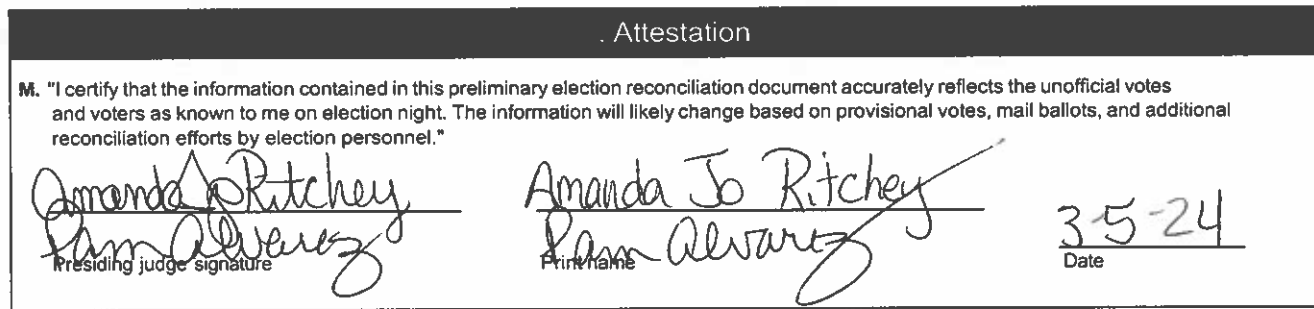 . Attestation
M. "I certify that the information contained in this preliminary election reconciliation document accurately reflects the unofficial votes
and voters as known to me on election night. The information will likely change based on provisional votes, mail ballots, and additional
reconciliation efforts by election personnel."
Amanda Jo Ritchey Amanda Jo Ritchey
Pam Alvarez Pam Alvarez 3-5-24
Presiding judge signature Print name Date